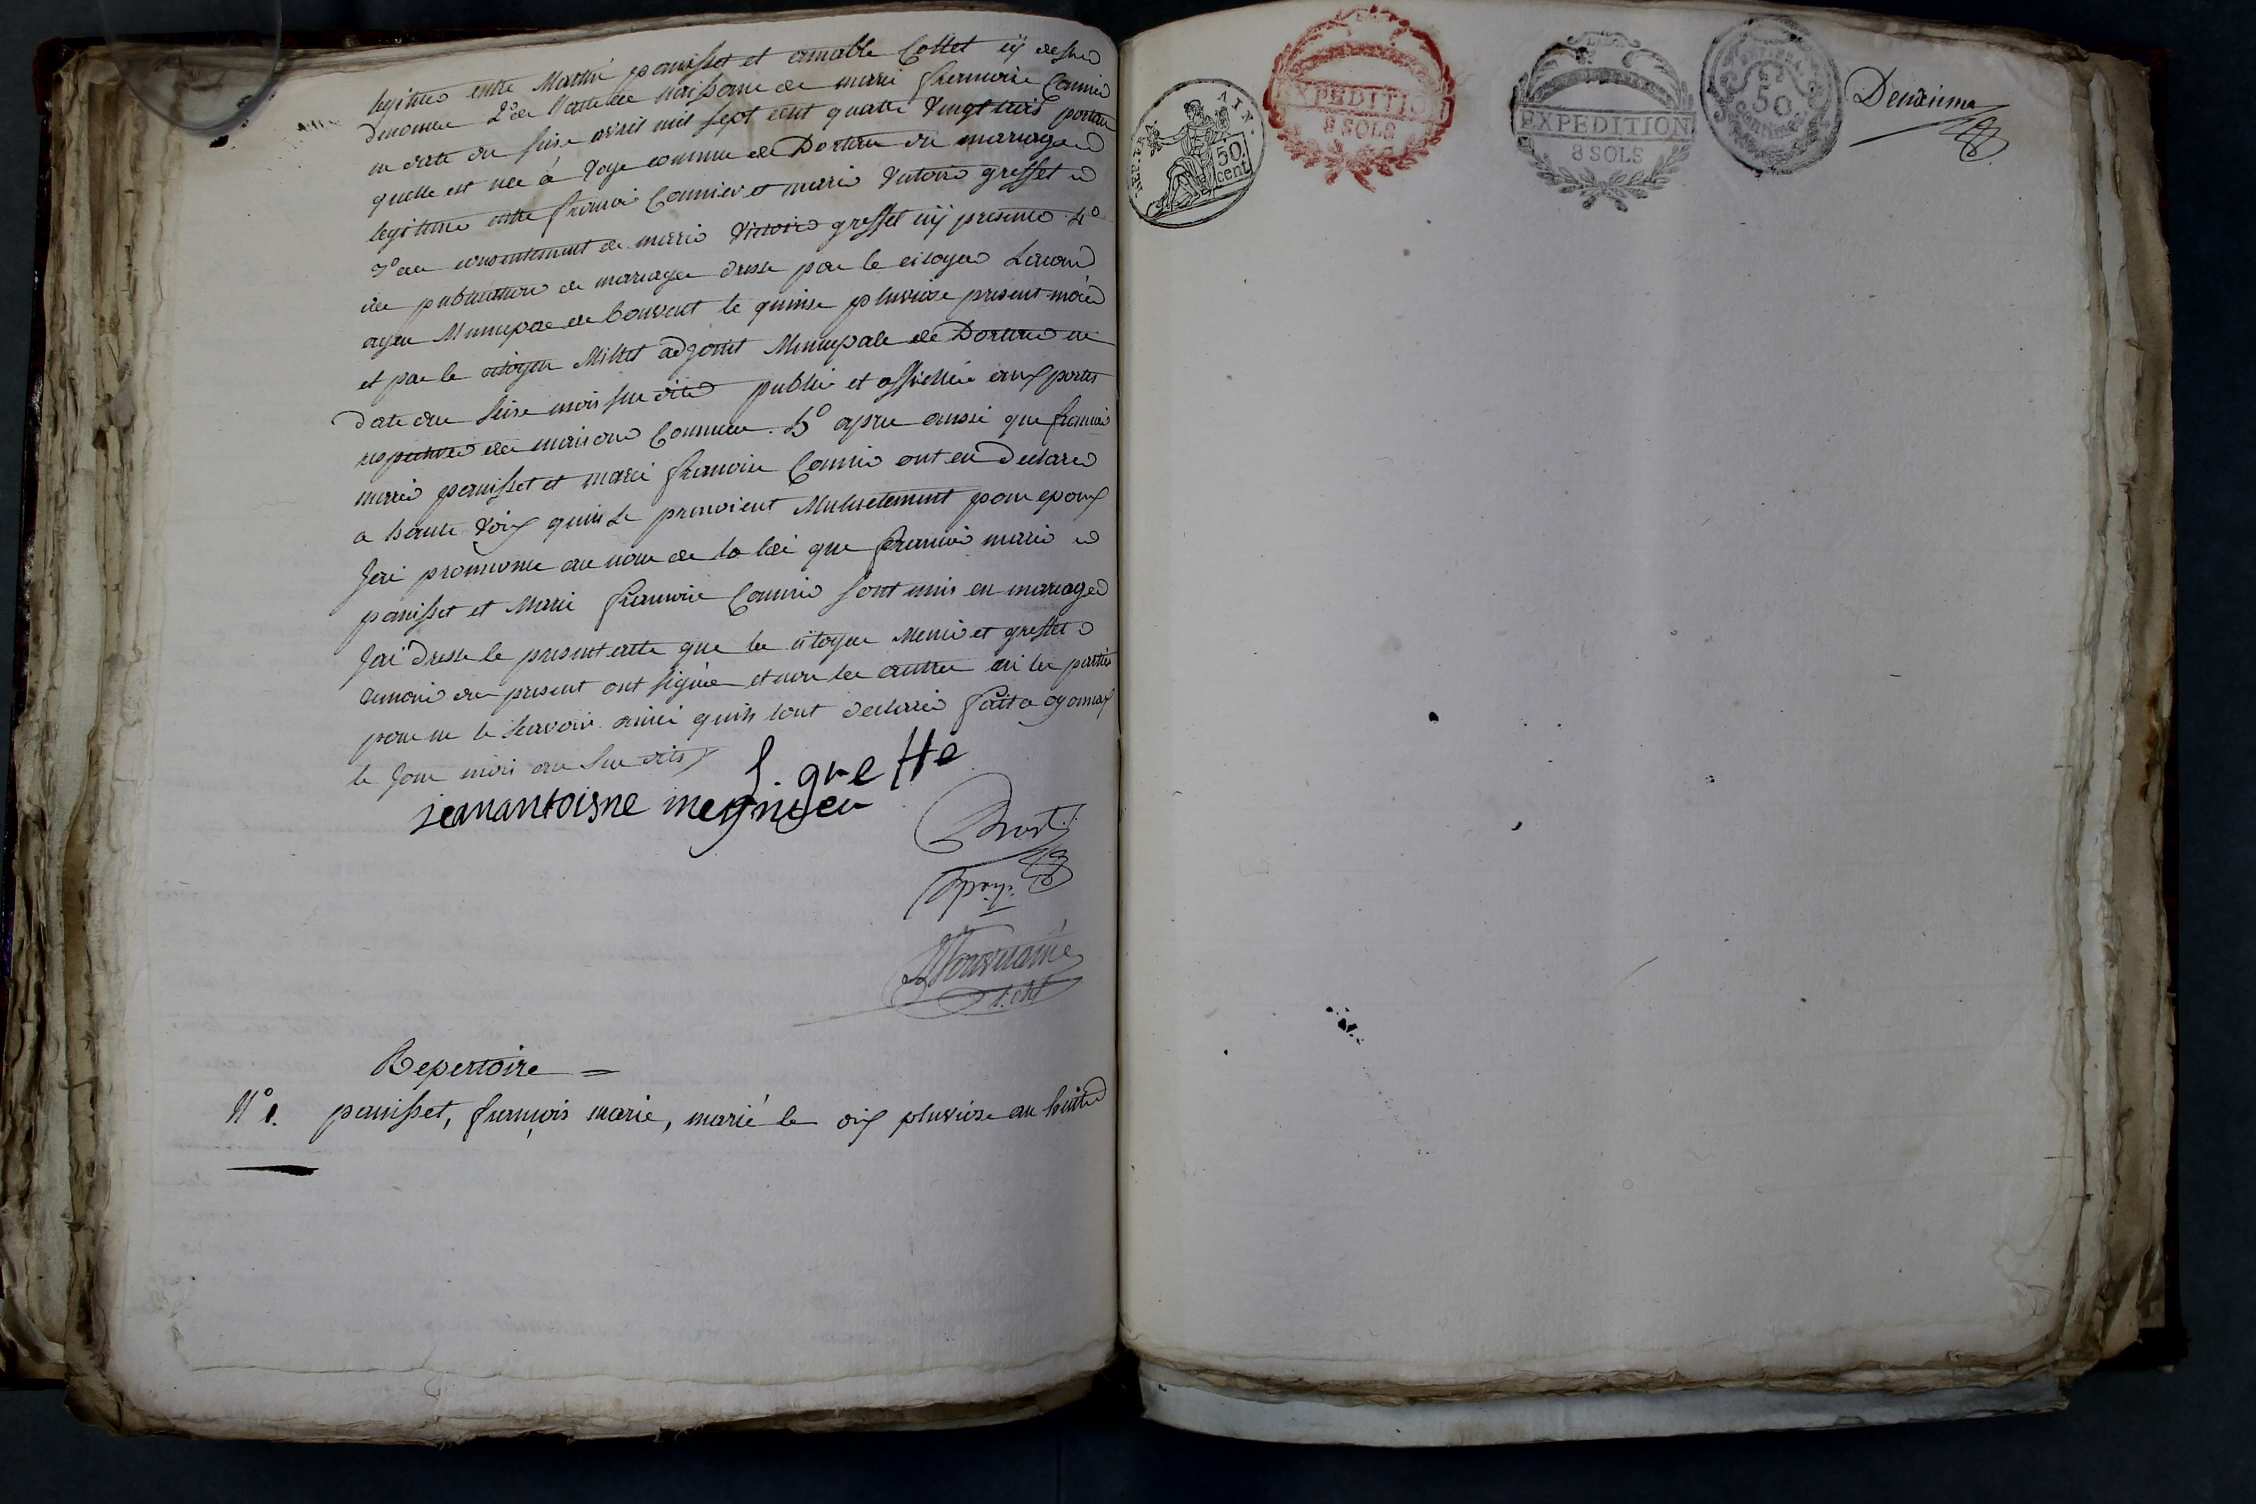 legitime entre Mathie panisset et amable Collet cy dessus
denomée 2° de l'acte de naissance de marie francoise Connier
en date du seise avril mil sept cent quatre vingt trois portan
quelle est née à Voye commune de Dortan du mariage
legitime entre francoi Connier et marie Victoire gresset
3° du consentement de marie Victoire gresset icy presente 4°
de publication de mariage dressé par le citoyen
agen Municipale de bouvent le quinse pluviose present mois
et par le citoyen Millet adjoint Municipale de Dortan en
date du seise mois sus dite publié et affichée aux portes
respective de maison Commune. 5° apres aussi que francois
marie panisset et marie francoise Connier ont eu declaré
a haute Voix quils se prenoient Mutuelement pour epoux
Jai prononcé au nom de la loi que francoi marie
panisset et Marie francoise Connier sont unis en mariage
Jai dressé le present acte que les citoyen et gresset
temoin du present ont signée et non les autres ni les parties
pour ne le scavoir ainsi quils lont declarée fait a oyonnax
le Jour mois an sus dits
f. grette
jeanantoisne megnieu
Brost
Repertoire =
N° 1. panisset, françois marie, marié le dix pluviose an huit
AIN.
50 cent
EXPEDITION
8 SOLS
EXPEDITION
8 SOLS
50
centimes
Deuxieme